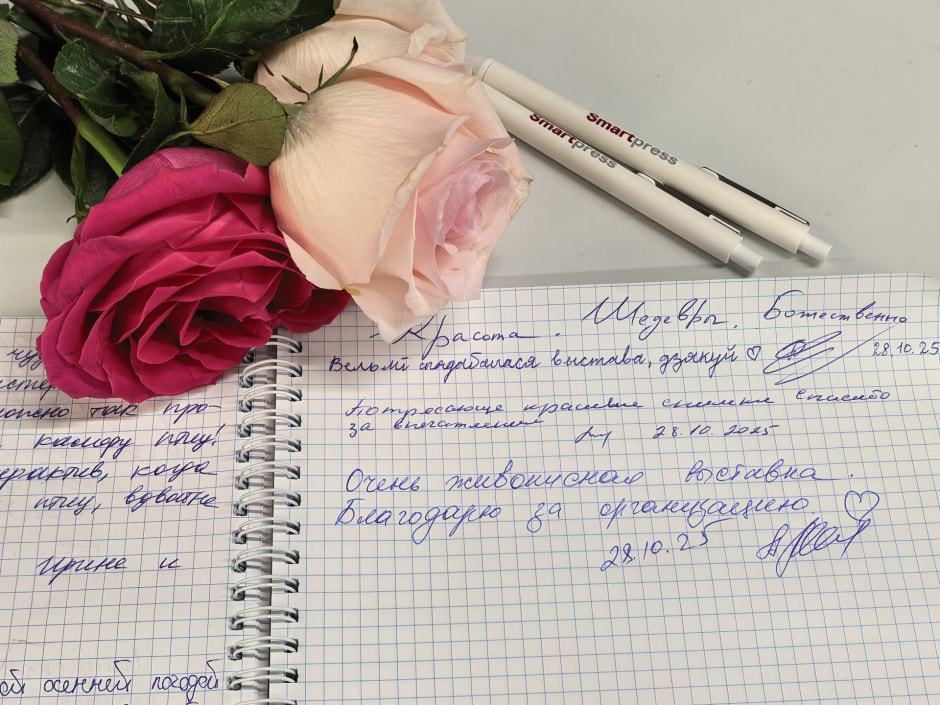 smartpress
smartpress
чу
исте
можно так про-
камеру птиц!
ерактив, когда
птиц, вдвойне
Ирине и
ой осенней погодой
Красота. Шедевры. Божественно
Вельмі спадабалася выстава, дзякуй ♡ 28.10.25
Потрясающе красивые снимки Спасибо
за впечатления
28.10.2025
Очень живописная выставка.
Благодарю за организацию. ♡
28.10.25